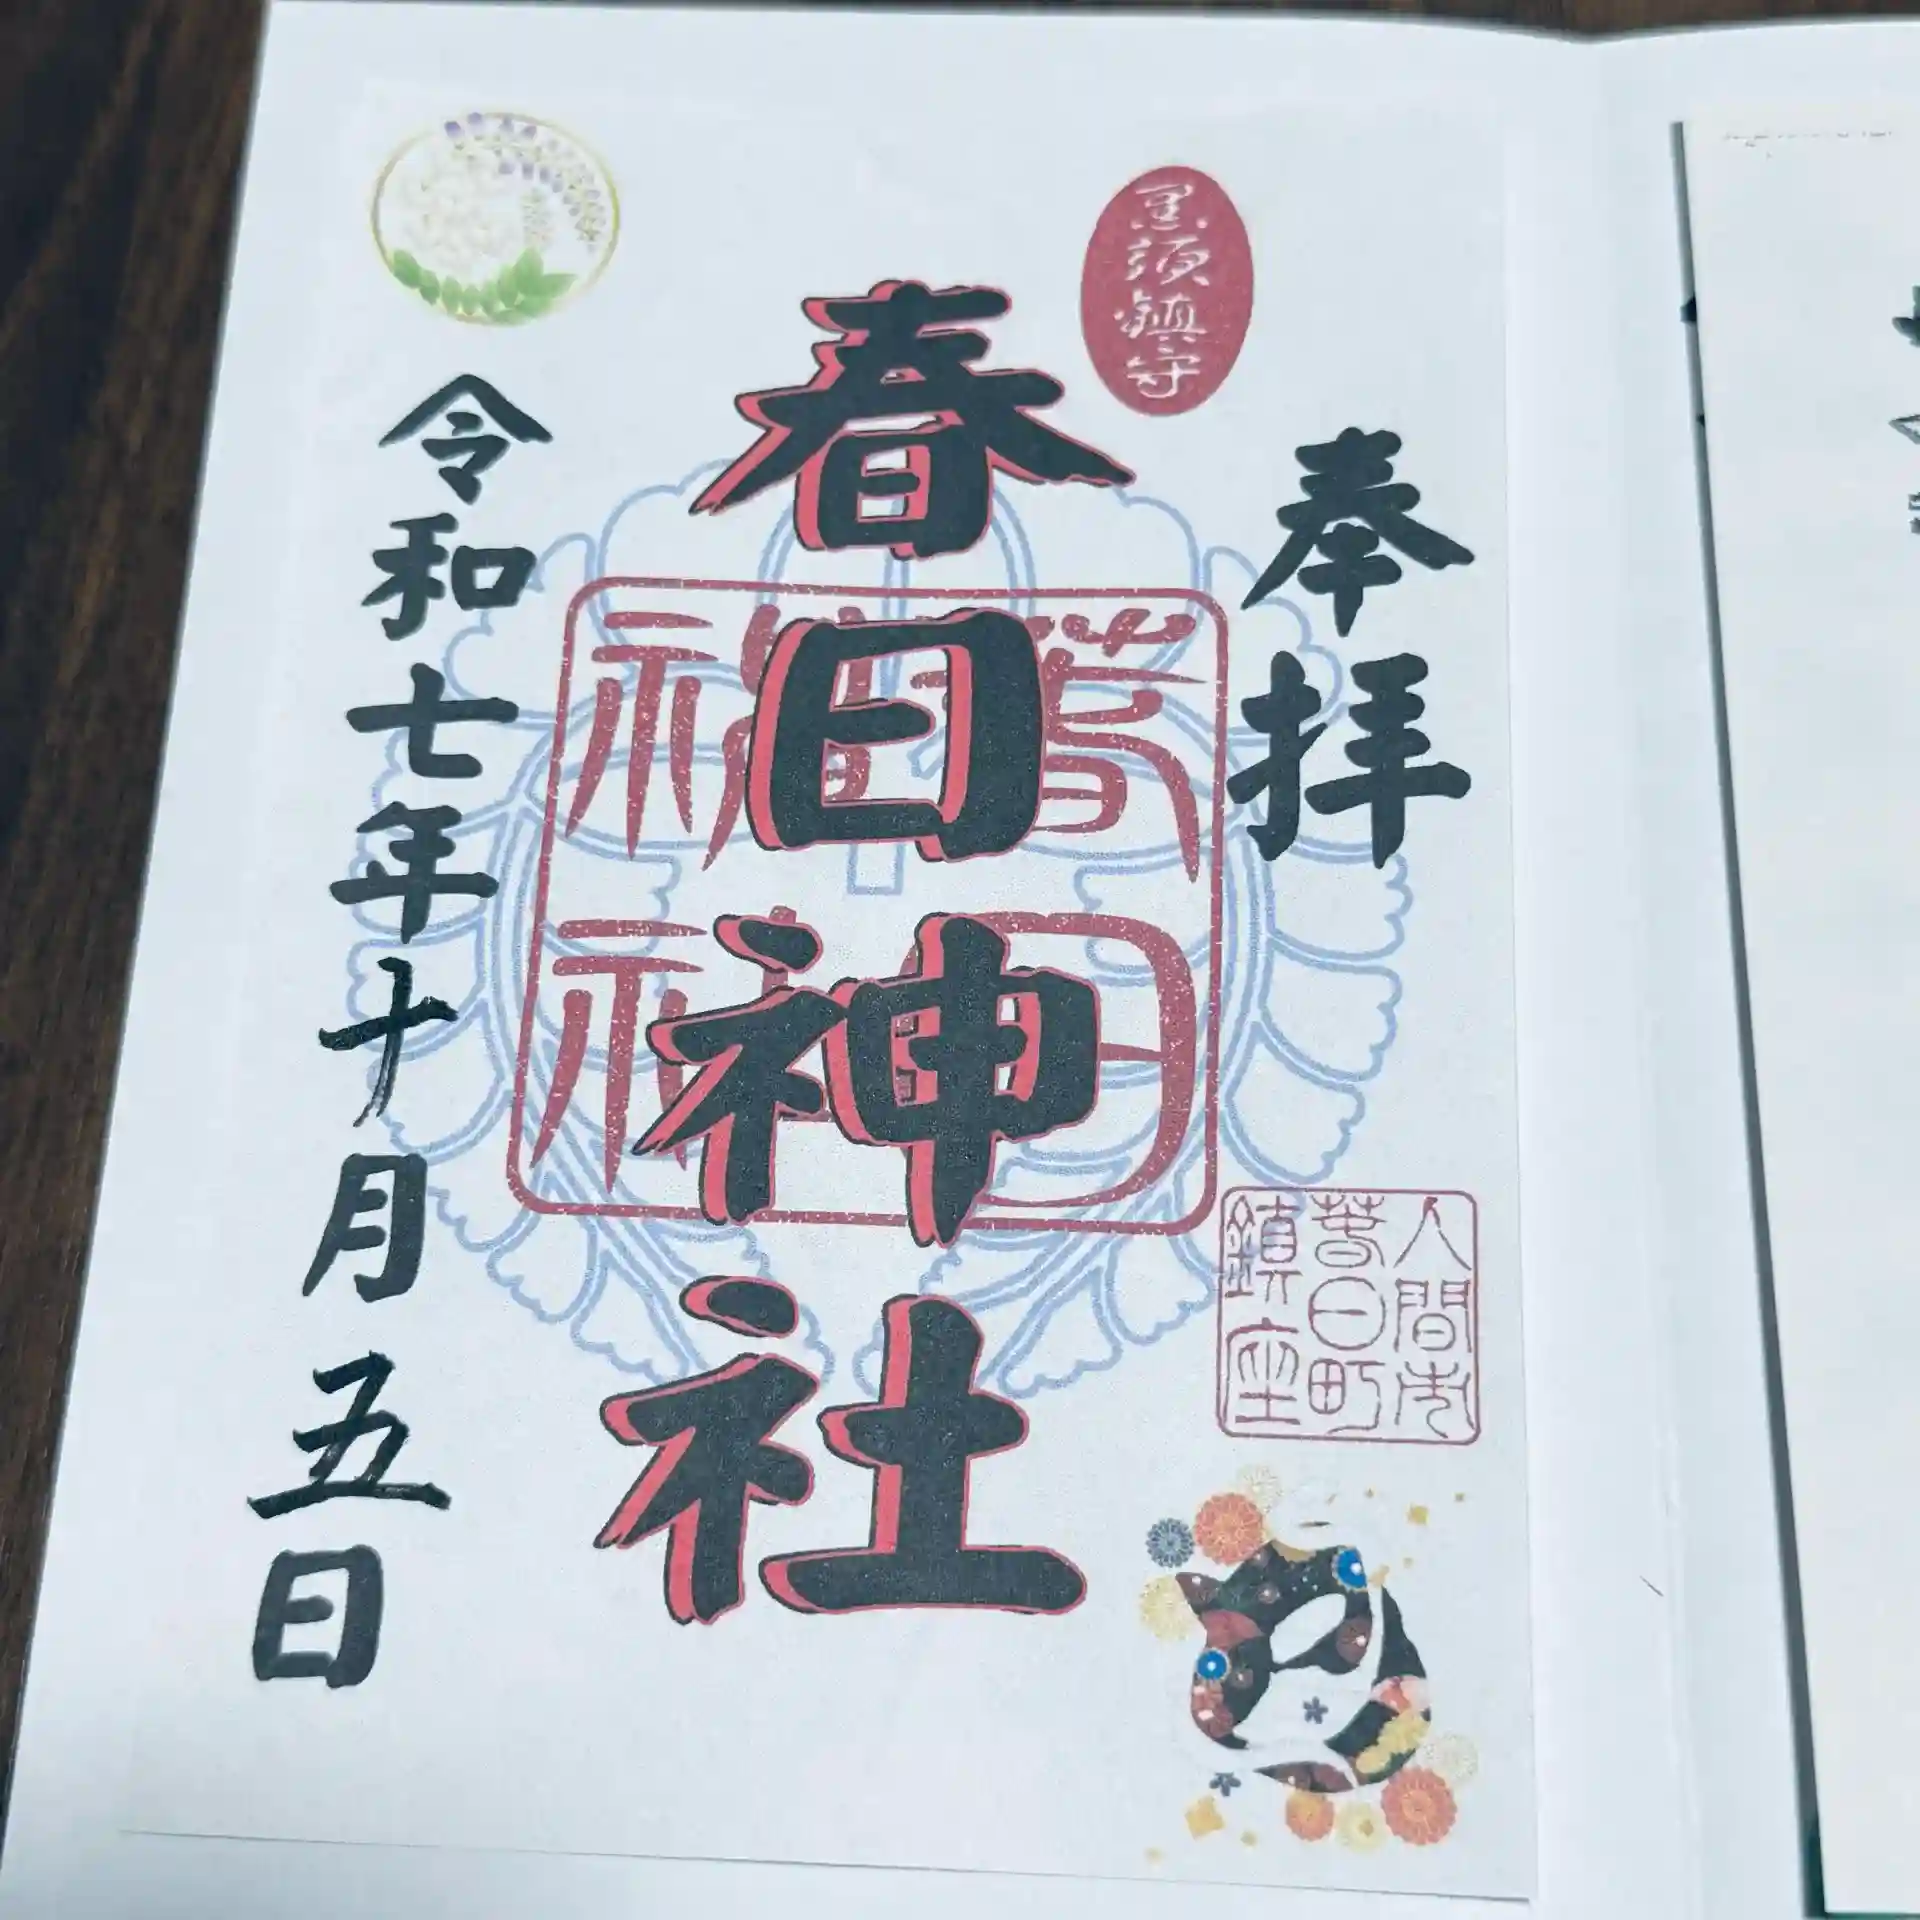 黒須鎮守
奉拝
春日神社
春日
神社
人間市
春日町
鎮座
令和七年十月五日